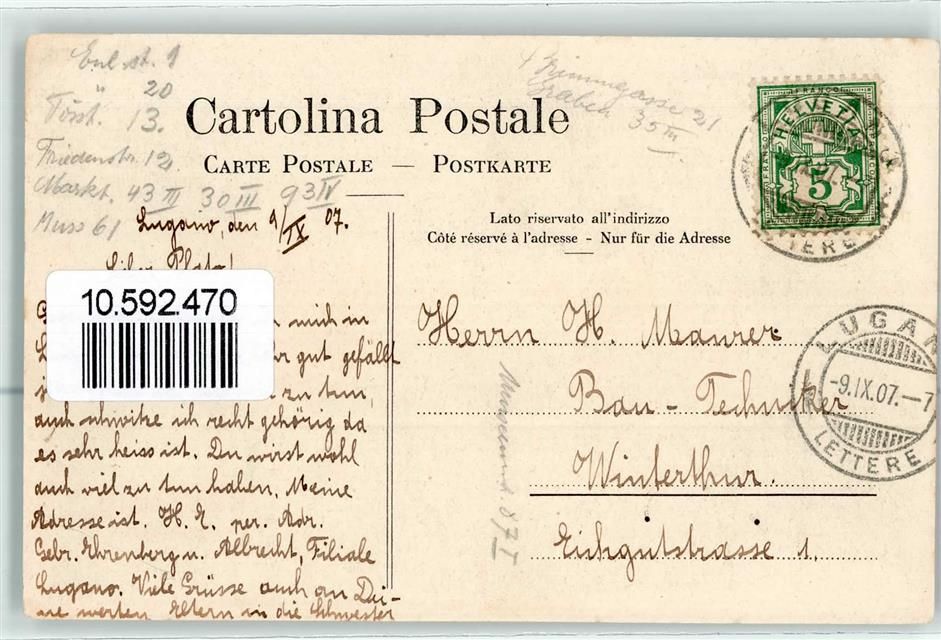 20
13.
Friedenstr. 12
Markt. 43 III 30 III 93 IV
Muss 61
21
Graben 35 III
Cartolina Postale
CARTE POSTALE — POSTKARTE
Lato riservato all'indirizzo
Côté réservé à l'adresse - Nur für die Adresse
FRANCO
HELVETIA
5
LETTERE
LUGANO
-9.IX.07.-7
LETTERE
Lugano, den 9/IX 07.
Lieber
10.592.470
mich in
gut gefällt
zu tun,
auch schwitze ich recht gehörig da
es sehr heiss ist. Du wirst wohl
auch viel zu tun haben. Meine
Adresse ist. H. E. per. Adr.
Gebr. Ehrenberg u. Albrecht, Filiale
Lugano. Viele Grüsse auch an Dei-
ne werten Eltern in die Schwester
Herrn H. Maurer
Bau-Techniker
Winterthur.
Eichgutstrasse 1.